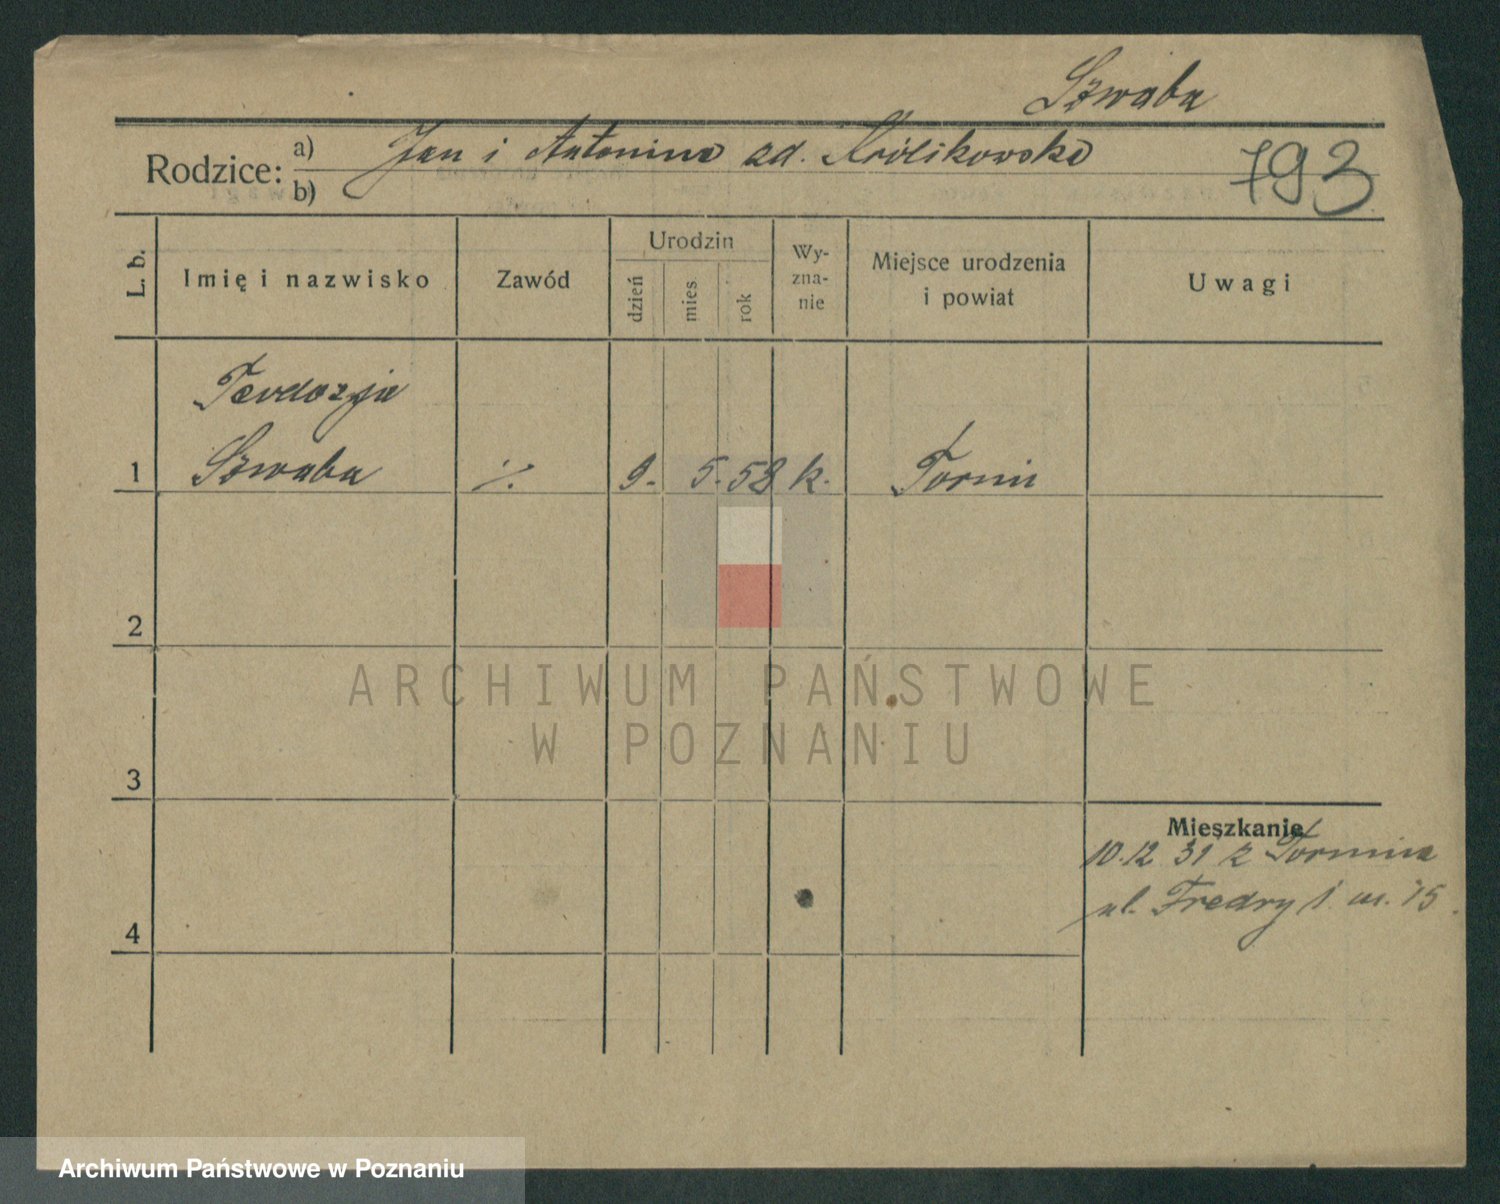 Szwaba
Rodzice: a) Jan i Antonina zd. Królikowska
b)
793
L. b.
Imię i nazwisko
Zawód
Urodzin
dzień
mies.
rok
Wy-
zna-
nie
Miejsce urodzenia
i powiat
Uwagi
Teodozja
1 Szwaba ./. 9. 5. 58 k. Toruń
2
3
4
Mieszkanie
10.12 31 z Torunia
ul. Fredry 1 m. 15.
ARCHIWUM PAŃSTWOWE
W POZNANIU
Archiwum Państwowe w Poznaniu